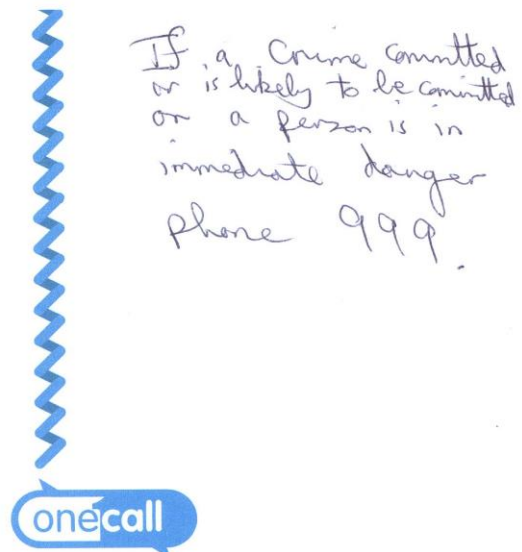 If a Crime committed
or is likely to be committed
or a person is in
immediate danger
phone 999.
onecall